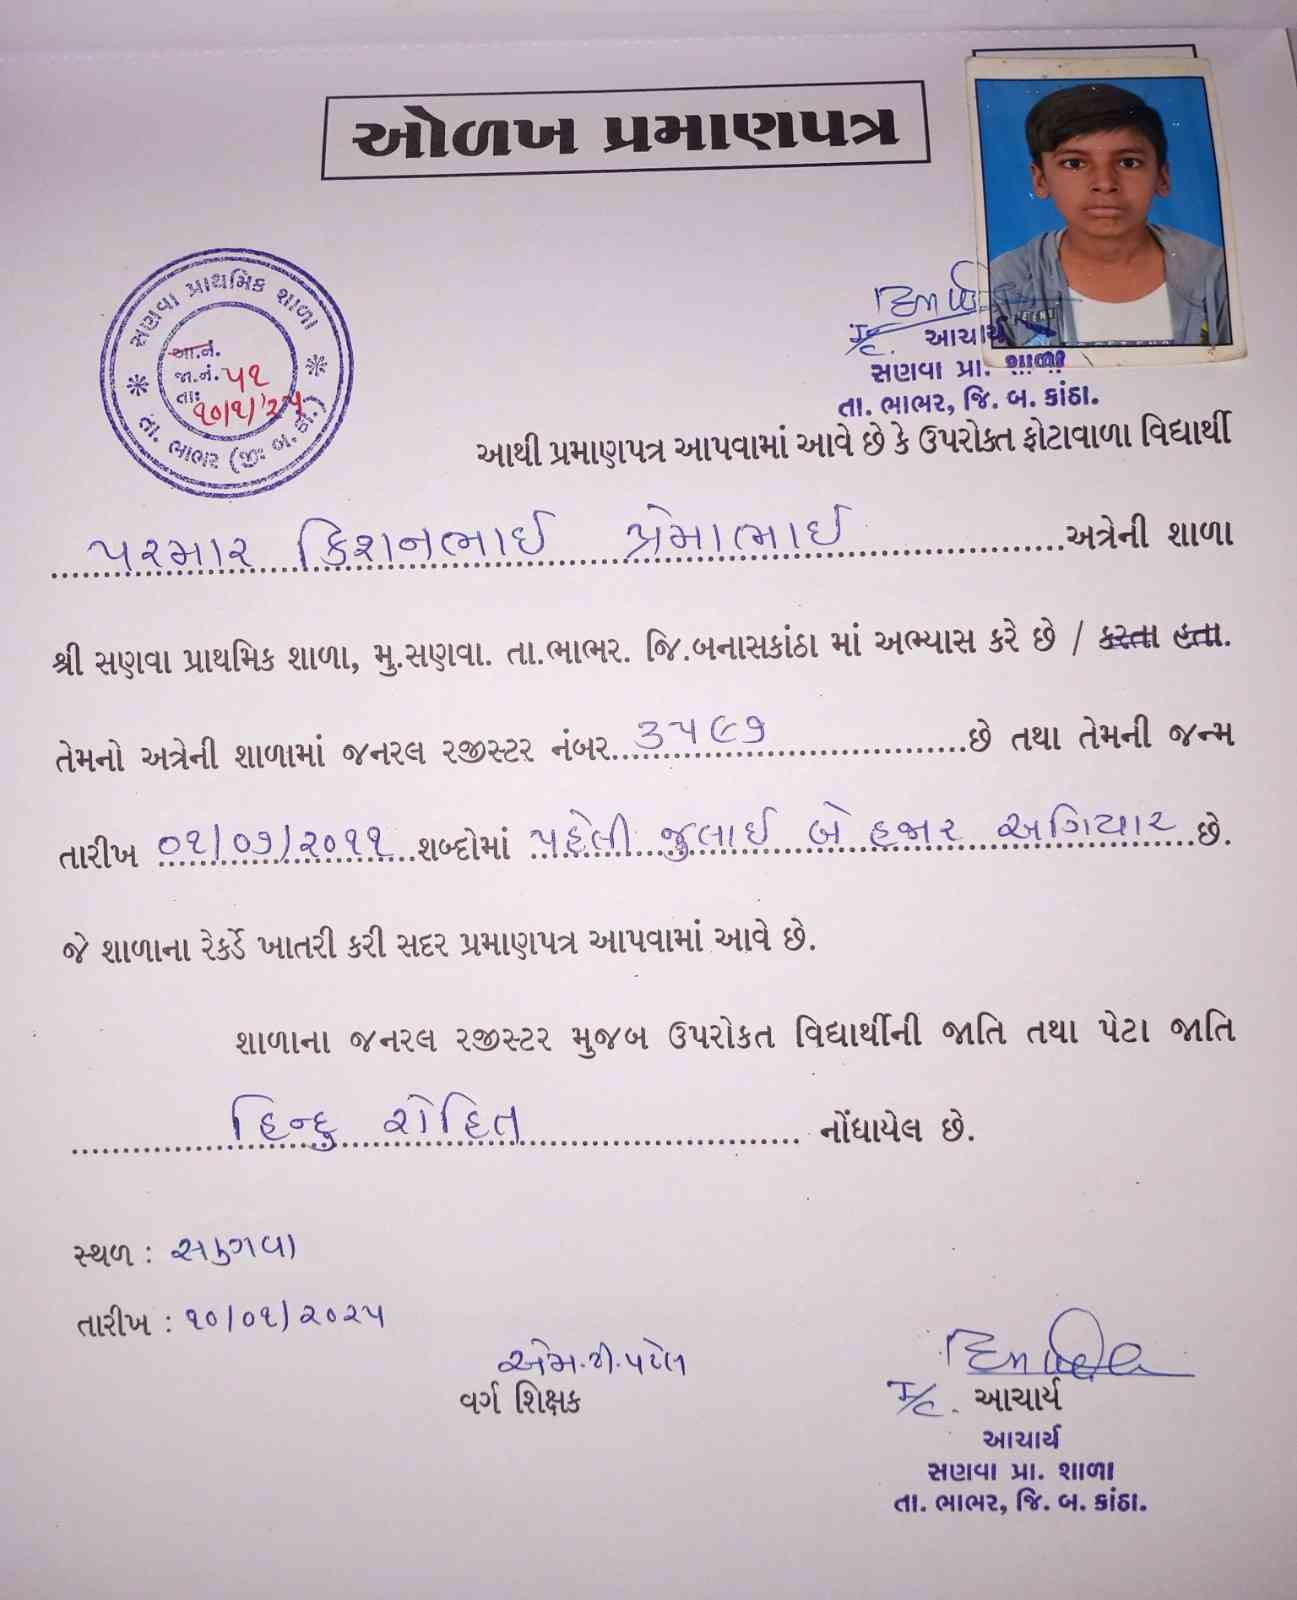 ઓળખ પ્રમાણપત્ર
સણવા પ્રાથમિક શાળા
આ.નં.
જા.નં. ૫૧
તા: ૧૦/૧/૨૫
તા. ભાભર (જી: બ. કાં.)
I/C. આચાર્ય
સણવા પ્રા. શાળા
તા. ભાભર, જિ. બ. કાંઠા.
આથી પ્રમાણપત્ર આપવામાં આવે છે કે ઉપરોક્ત ફોટાવાળા વિદ્યાર્થી
પરમાર કિશનભાઈ પ્રેમાભાઈ અત્રેની શાળા
શ્રી સણવા પ્રાથમિક શાળા, મુ.સણવા. તા.ભાભર. જિ.બનાસકાંઠા માં અભ્યાસ કરે છે / કરતા હતા.
તેમનો અત્રેની શાળામાં જનરલ રજીસ્ટર નંબર..૩૫૯૭..છે તથા તેમની જન્મ
તારીખ ૦૧/૦૭/૨૦૧૧ શબ્દોમાં પહેલી જુલાઈ બે હજાર અગિયાર છે.
જે શાળાના રેકર્ડે ખાતરી કરી સદર પ્રમાણપત્ર આપવામાં આવે છે.
શાળાના જનરલ રજીસ્ટર મુજબ ઉપરોક્ત વિદ્યાર્થીની જાતિ તથા પેટા જાતિ
હિન્દુ રોહિત નોંધાયેલ છે.
સ્થળ : સણવા
તારીખ : ૧૦/૦૧/૨૦૨૫
એમ.ટી.પટેલ
વર્ગ શિક્ષક
I/C. આચાર્ય
આચાર્ય
સણવા પ્રા. શાળા
તા. ભાભર, જિ. બ. કાંઠા.